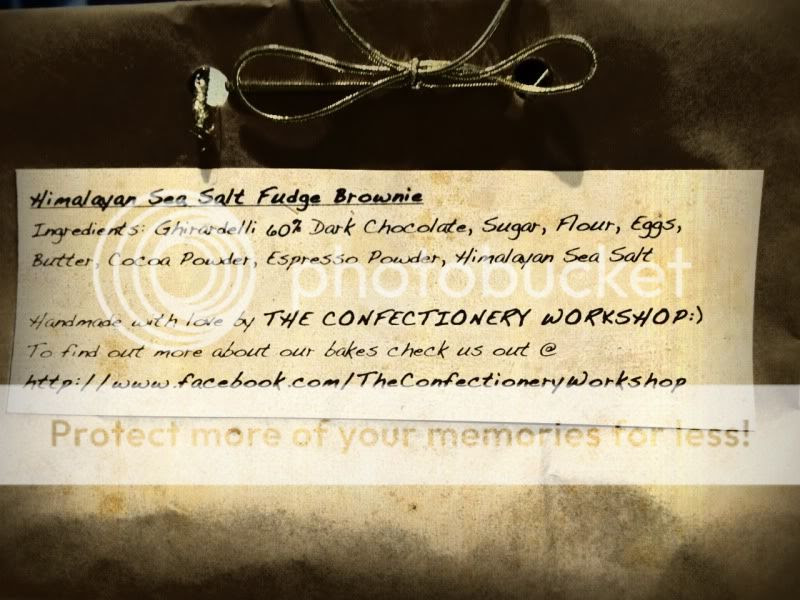 Himalayan Sea Salt Fudge Brownie
Ingredients: Ghirardelli 60% Dark Chocolate, Sugar, Flour, Eggs,
Butter, Cocoa Powder, Espresso Powder, Himalayan Sea Salt
photobucket
Handmade with love by THE CONFECTIONERY WORKSHOP:)
To find out more about our bakes check us out @
http://www.facebook.com/TheConfectioneryWorkshop
Protect more of your memories for less!